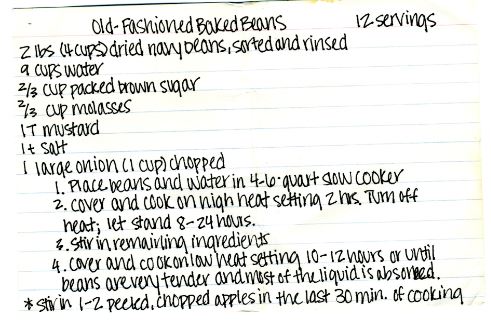 Old-Fashioned Baked Beans 12 servings
2 lbs (4 cups) dried navy beans, sorted and rinsed
9 cups water
2/3 cup packed brown sugar
2/3 cup molasses
1 T mustard
1 t salt
1 large onion (1 cup) chopped
1. Place beans and water in 4-6-quart slow cooker
2. cover and cook on high heat setting 2 hrs. Turn off
heat; let stand 8-24 hours.
3. Stir in remaining ingredients
4. cover and cook on low heat setting 10-12 hours or until
beans are very tender and most of the liquid is absorbed.
* stir in 1-2 peeled, chopped apples in the last 30 min. of cooking